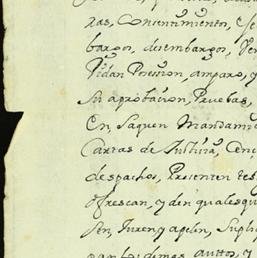 ras, Consentimientos, Se
bargos, desembargos, Ven
Pidan Posesion, amparo, y
Su aprobacion, Pruebas,
En, Saquen Mandami
Cartas de Justicia, Cen
despachos, Presenten tes
ofrescan, y den qualesqu
sen, Juren, y apelen, Supliq
gan los demas auttos, y